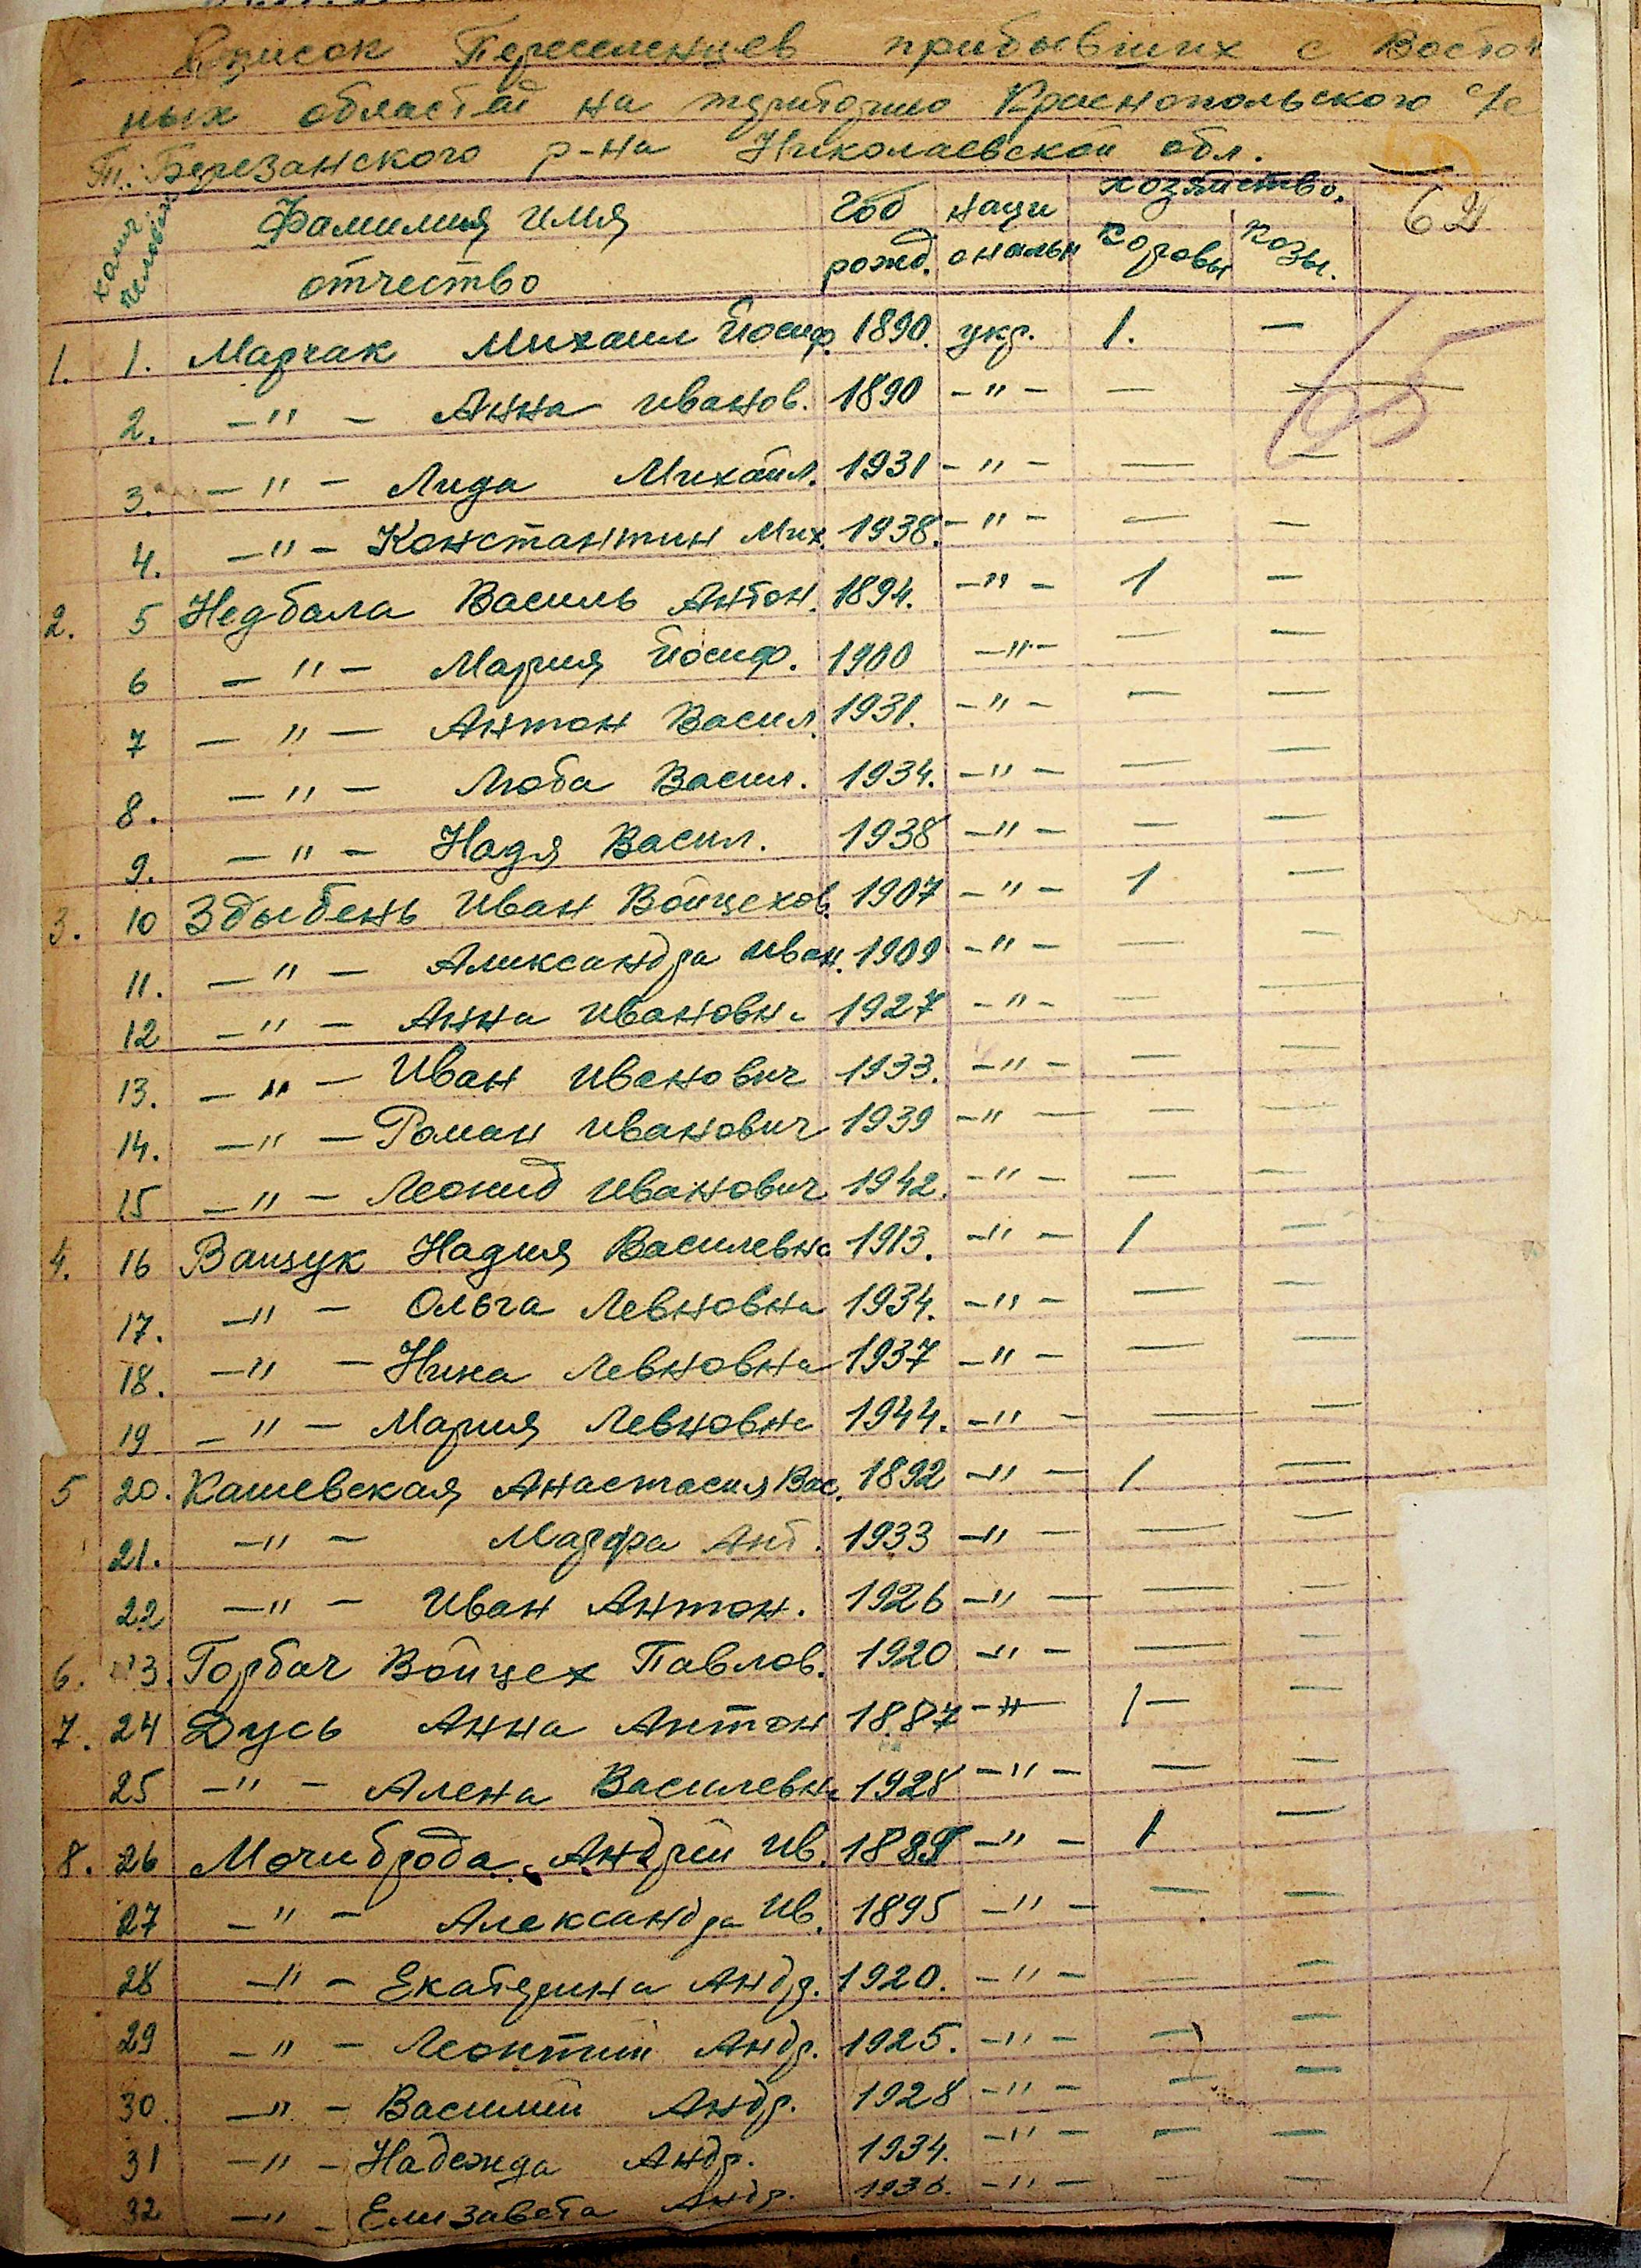 Список Переселенцев прибывших с Восточ
ных областей на територию Краснопольского с/с
Т. Березанского р-на Николаевской обл.
62
колич человек Фамилия имя отчество Год рожд. наци ональн хозяйство. Коровы Козы.
65
1. 1. Марчак Михаил Йосиф. 1890. укр. 1. —
2. —"— Анна Иванов. 1890 —"— — —
3. —"— Лида Михайл. 1931 —"— — —
4. —"— Константин Мих. 1938. —"— — —
2. 5 Недбала Василь Антон. 1894. —"— 1 —
6 —"— Мария Йосиф. 1900 —"— — —
7 —"— Антон Васил. 1931. —"— — —
8. —"— Люба Васил. 1934. —"— — —
9. —"— Надя Васил. 1938 —"— — —
3. 10 Здыбень Иван Войцехов. 1907 —"— 1 —
11. —"— Аликсандра Иван. 1909 —"— — —
12 —"— Анна Ивановна 1927 —"— — —
13. —"— Иван Иванович 1933. —"— — —
14. —"— Роман Иванович 1939 —"— — —
15 —"— Леонид Иванович 1942. —"— — —
4. 16 Ванзук Надия Василевна 1913. —"— 1 —
17. —"— Ольга Левновна 1934. —"— — —
18. —"— Нина Левновна 1937 —"— — —
19 —"— Мария Левновна 1944. —"— — —
5 20. Кашевская Анастасия Вас. 1892 —"— 1 —
21. —"— Марфа Ант. 1933 —"— — —
22 —"— Иван Антон. 1926 —"— — —
6. 23. Горбач Войцех Павлов. 1920 —"— — —
7. 24 Дусь Анна Антон 1887 —"— 1— —
25 —"— Алена Василевна 1928 —"— — —
8. 26 Мочиброда Андрій Ив. 1889 —"— 1 —
27 —"— Александра Ив. 1895 —"— — —
28 —"— Екатерина Андр. 1920. —"— — —
29 —"— Леонтий Андр. 1925. —"— — —
30. —"— Василий Андр. 1928 —"— — —
31 —"— Надежда Андр. 1934. —"— — —
32 —"— Елизавета Андр. 1936. —"— — —